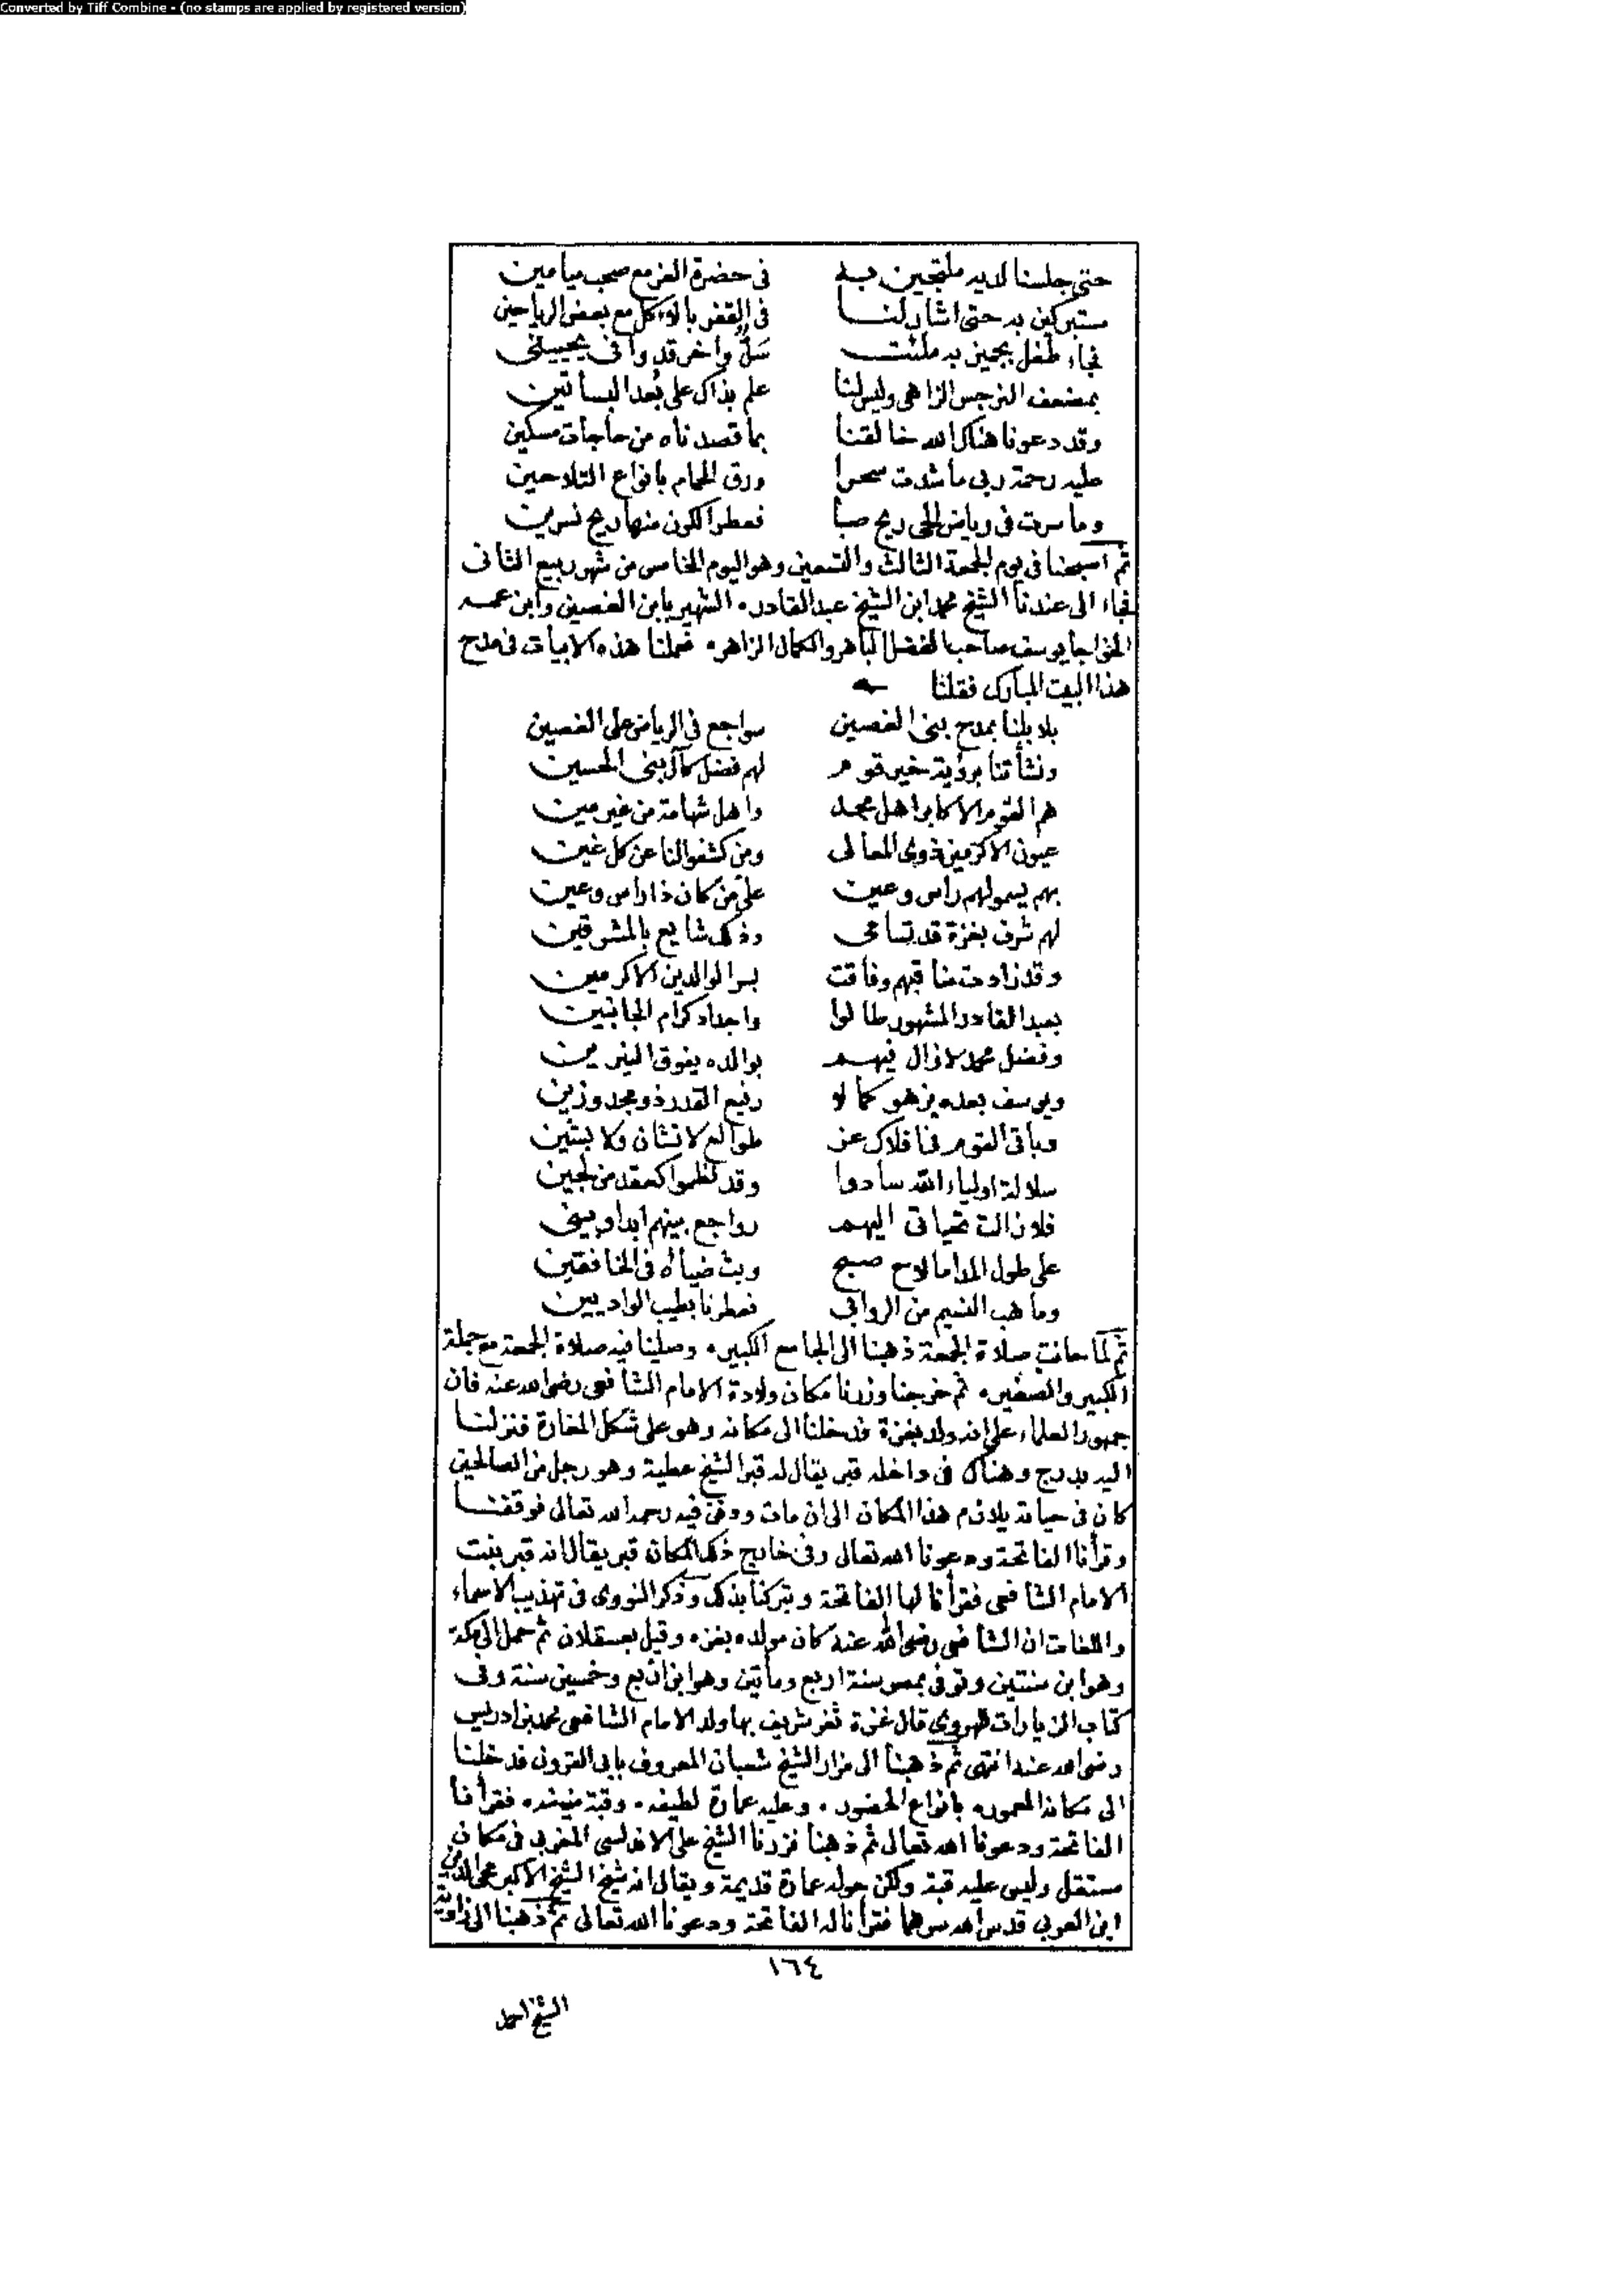 Converted by Tiff Combine - (no stamps are applied by registered version)
حتى جلسنا لديه ملتجين به في حضرة العز مع صحب ميامين
متبركين به حتى اشار لنا في القفر بالاكل مع بعض الرياحين
فجاء طفل بجبن به ملئت سل واخر قد وافى يحييني
بمضعف النرجس الزاهي وليس لنا علم بذاك على بعد البساتين
وقد دعونا هناك الله خالقنا بما قصدناه من حاجات مسكين
عليه رحمة ربي ما شدت سحرا ورق الحمام بانواع التلاحين
وما سرت في رياض الحي ريح صبا فعطر الكون منها ريح نسرين
ثم اصبحنا في يوم الجمعة الثالث والتسعين وهو اليوم الخامس من شهر ربيع الثاني
فجاء الى عندنا الشيخ محمد ابن الشيخ عبد القادر. الشهير بابن الغصين وابن عمه
الخواجا يوسف صاحب الفضل الباهر والكمال الزاهر. فعملنا هذه الابيات في مدح
هذا البيت المبارك فقلنا
بلابلنا بمدح بني الغصين سواجع في الرياض على الغصين
ونشأتنا برؤية خير قوم لهم فضل كآل بني الحسين
هم القوم الاكابر اهل مجد واهل شهامة من غير مين
عيون الاكرمين ذوي المعالي ومن كشفوا لنا عن كل غين
بهم يسمو لهم راس وعين على من كان ذا راس وعين
لهم شرف بغزة قد تسامى وذلك شايع بالمشرقين
وقد زادت مناقبهم وفاقت بسر الوالدين الاكرمين
بعبد القادر المشهور طالوا واجداد كرام الجانبين
وفضل محمد لا زال فيهم بوالده يفوق النيرين
ويوسف بعده يزهو كمالا رفيع القدر ذو مجد وزين
وباقي القوم في افلاك عز طوالع لا تشان ولا بشين
سلالة اولياء الله سادوا وقد نظموا كعقد من لجين
فلا زالت تحياتي اليهم رواجع بينهم ابدا وبيني
على طول المدا ما لاح صبح وبث ضياؤه في الخافقين
وما هب النسيم من الروابي فعطرنا بطيب الواديين
ثم لما حانت صلاة الجمعة ذهبنا الى الجامع الكبير. وصلينا فيه صلاة الجمعة مع جملة
الكبير والصغير. ثم خرجنا وزرنا مكان ولادة الامام الشافعي رضي الله عنه فان
جمهور العلماء على انه ولد بغزة فدخلنا الى مكانه وهو على شكل المغارة فنزلنا
اليه بدرج وهناك في داخله قبر يقال له قبر الشيخ عطية وهو رجل من الصالحين
كان في حياته يلازم هذا المكان الى ان مات ودفن فيه رحمه الله تعالى فوقفنا
وقرأنا الفاتحة ودعونا الله تعالى وفي خارج ذلك المكان قبر يقال انه قبر بنت
الامام الشافعي فقرأنا لها الفاتحة وتبركنا بذلك وذكر النووي في تهذيب الاسماء
واللغات ان الشافعي رضي الله عنه كان مولده بغزه وقيل بعسقلان ثم حمل الى مكة
وهو ابن سنتين وتوفى بمصر سنة اربع ومأتين وهو ابن اربع وخمسين سنة وفي
كتاب الزيارات للهروي قال غزة ثغر شريف بها ولد الامام الشافعي محمد بن ادريس
رضي الله عنه انتهى ثم ذهبنا الى مزار الشيخ شعبان المعروف بابي القرون فدخلنا
الى مكانه المعمور. بانواع الحضور. وعليه عمارة لطيفه. وقبة منيفه. فقرأنا
الفاتحة ودعونا الله تعالى ثم ذهبنا فزرنا الشيخ على الاندلسي المغربي في مكان
مستقل وليس عليه قبة ولكن حوله عمارة قديمة ويقال انه شيخ الشيخ الاكبر محي الدين
ابن العربي قدس الله سرهما فقرأنا له الفاتحة ودعونا الله تعالى ثم ذهبنا الى زاوية
١٦٤
الشيخ احمد